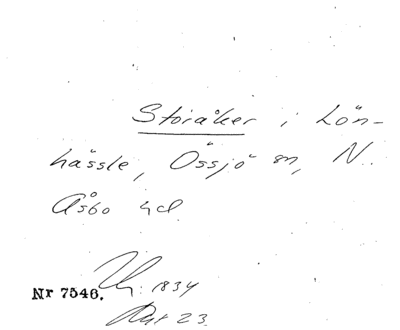 Storåker i Lön-
hässle, Össjö sn, N.
Åsbo hd.
Nr 7546. : 1834
Akt 23.